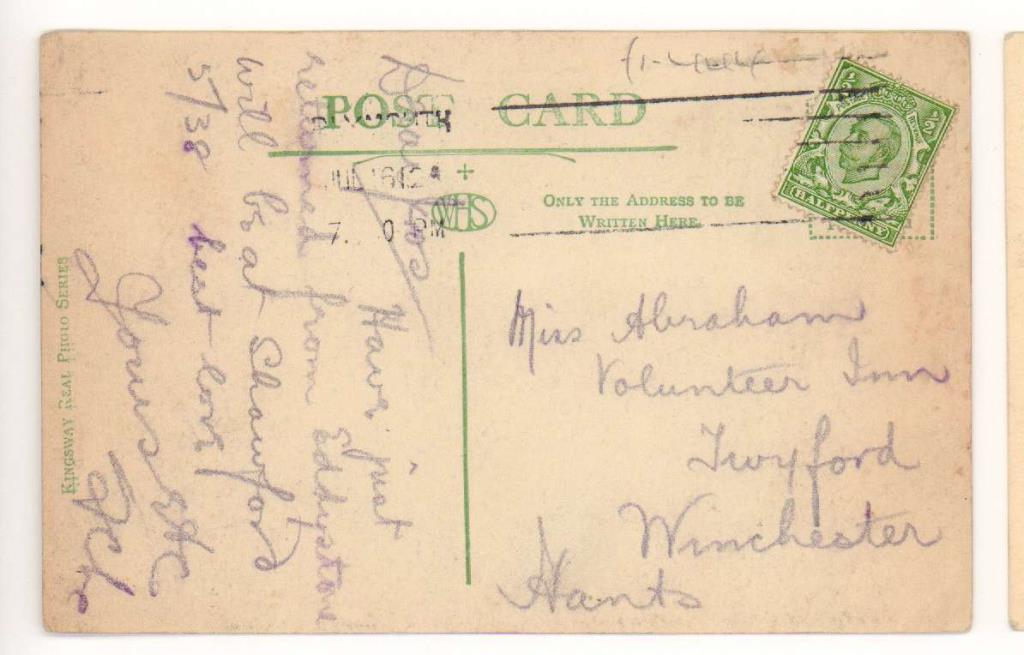 POST CARD
PLYMOUTH
JUL 16 12
7. 0 PM
WHS
ONLY THE ADDRESS TO BE
WRITTEN HERE.
½ ½
HALFPENNY
KINGSWAY REAL PHOTO SERIES
Dear
Have just
returned from Eddystone
will be at Shawford
5/30 best love
Yours
Miss Abraham
Volunteer Inn
Twyford
Winchester
Hants